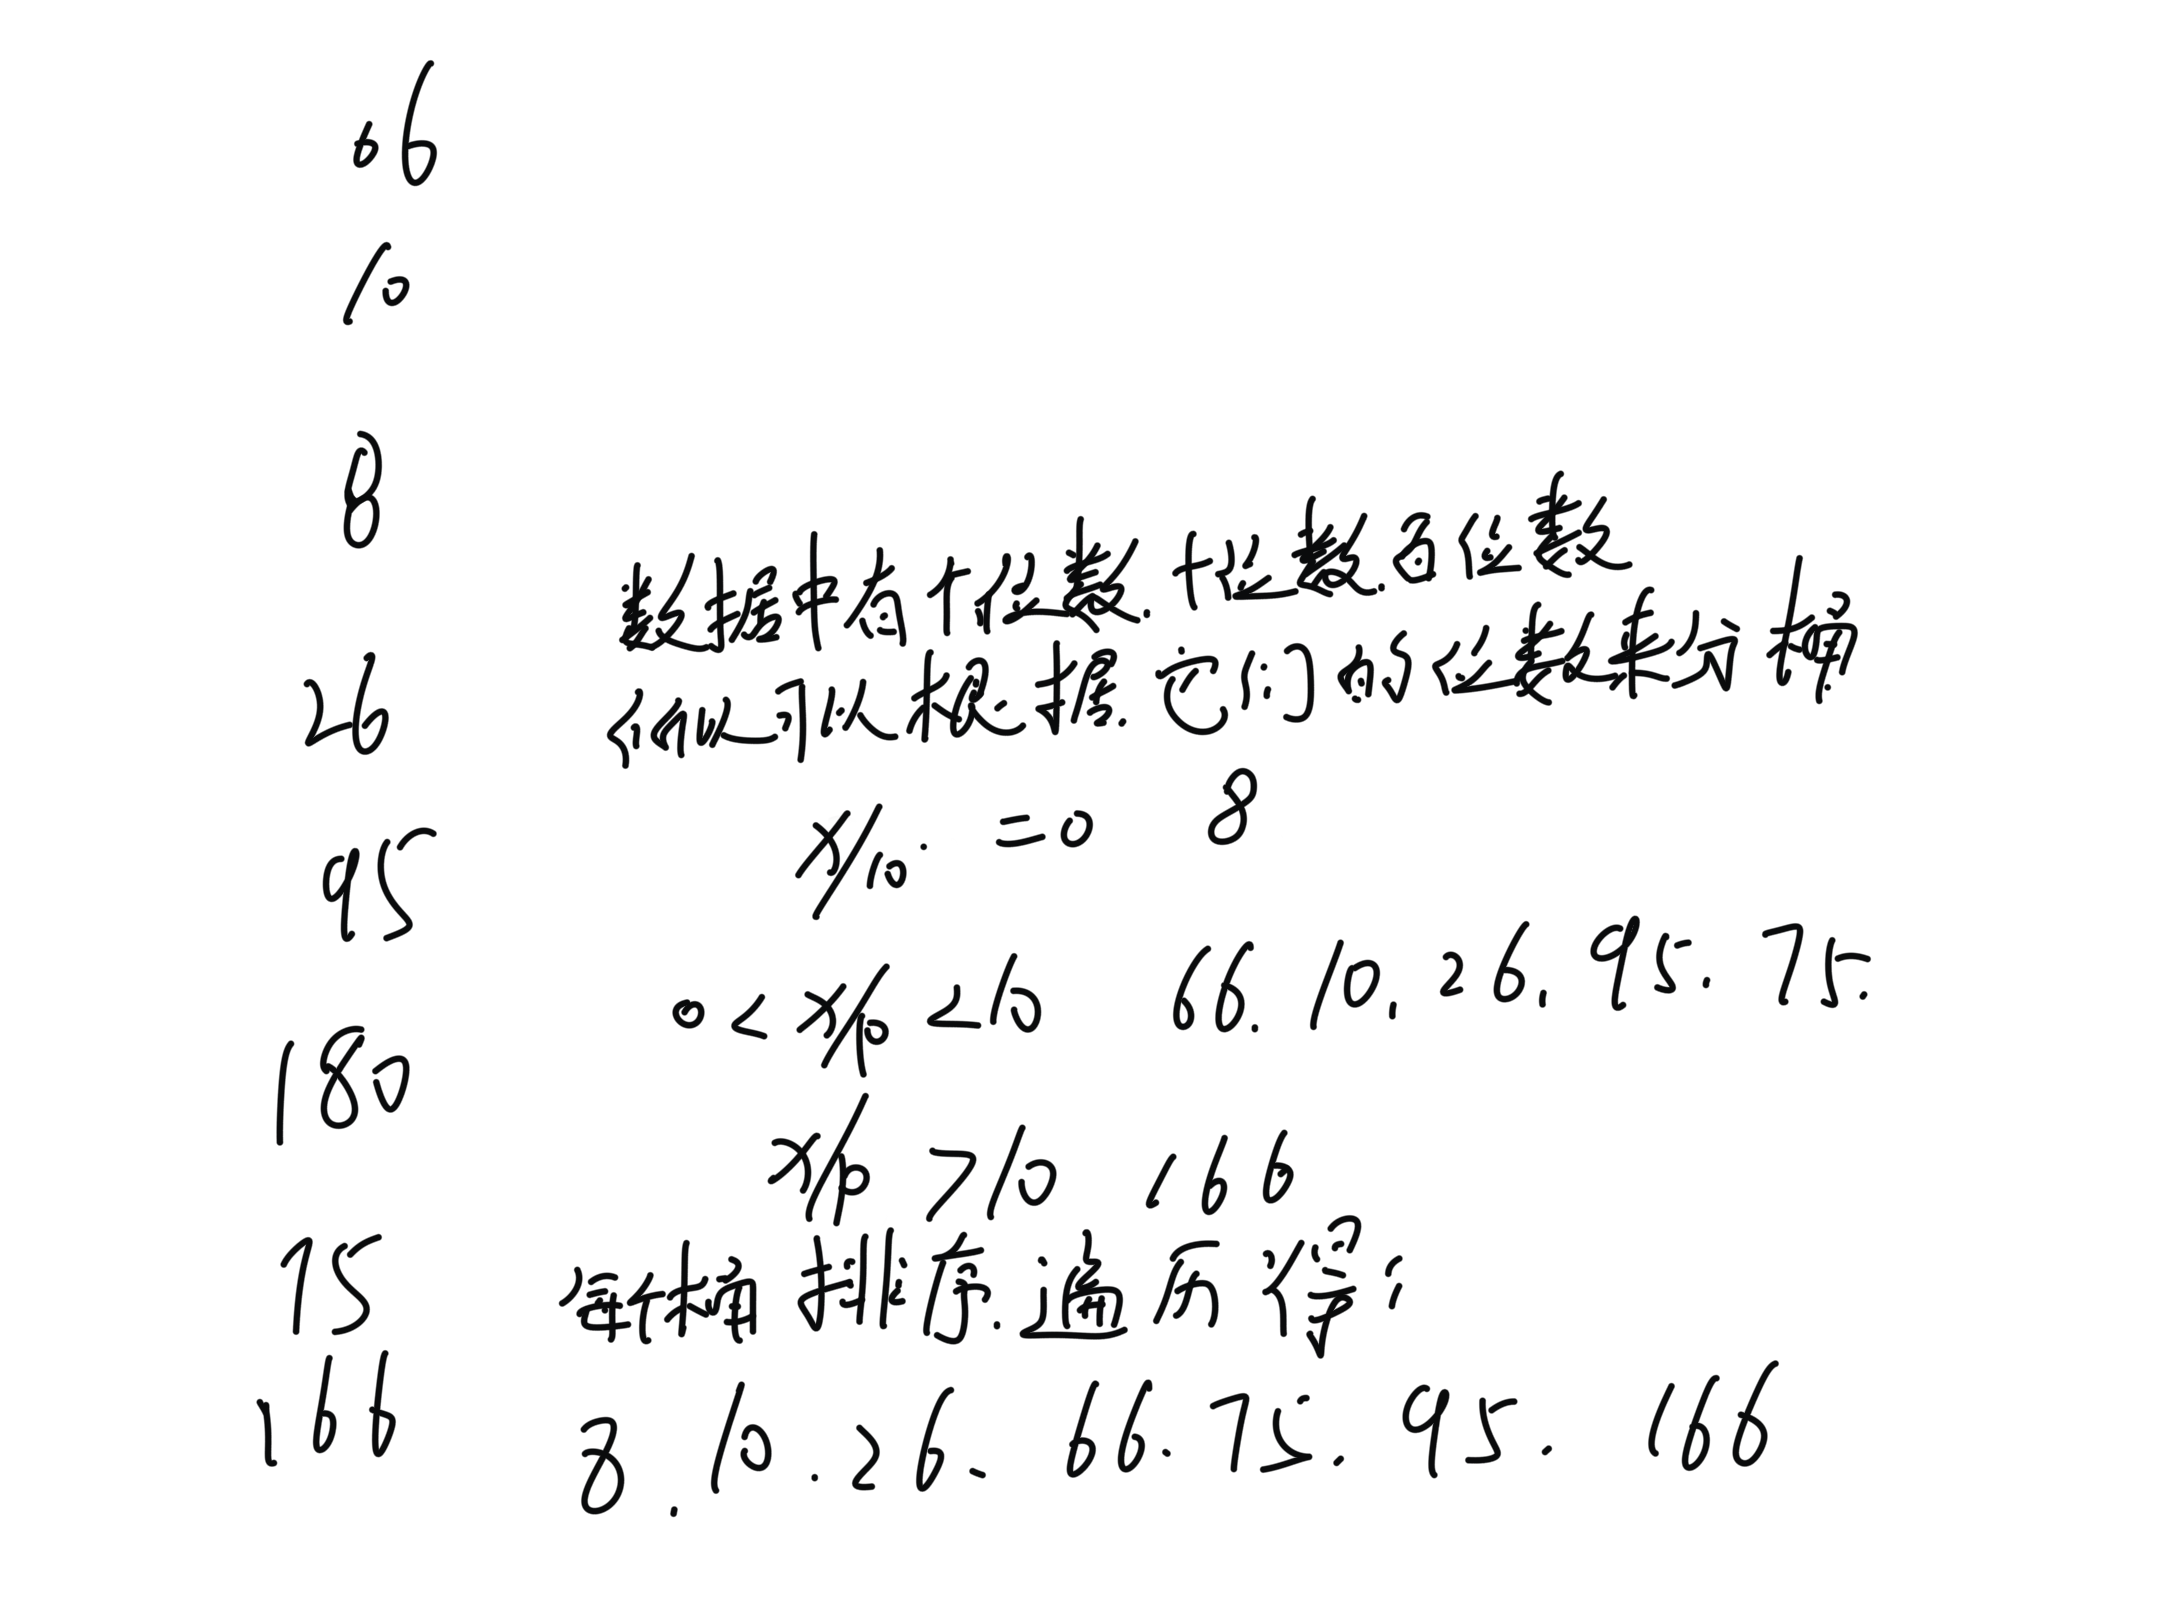 66
10
8
26
95
180
75
166
数据中有个位数.十位数.百位数
所以可以根据.它们的位数来分桶
x/10. =0 8
0<x/10<10 66.10.26.95.75.
x/10 >10 166
每个桶排序.遍历得:
8.10.26.66.75.95.166